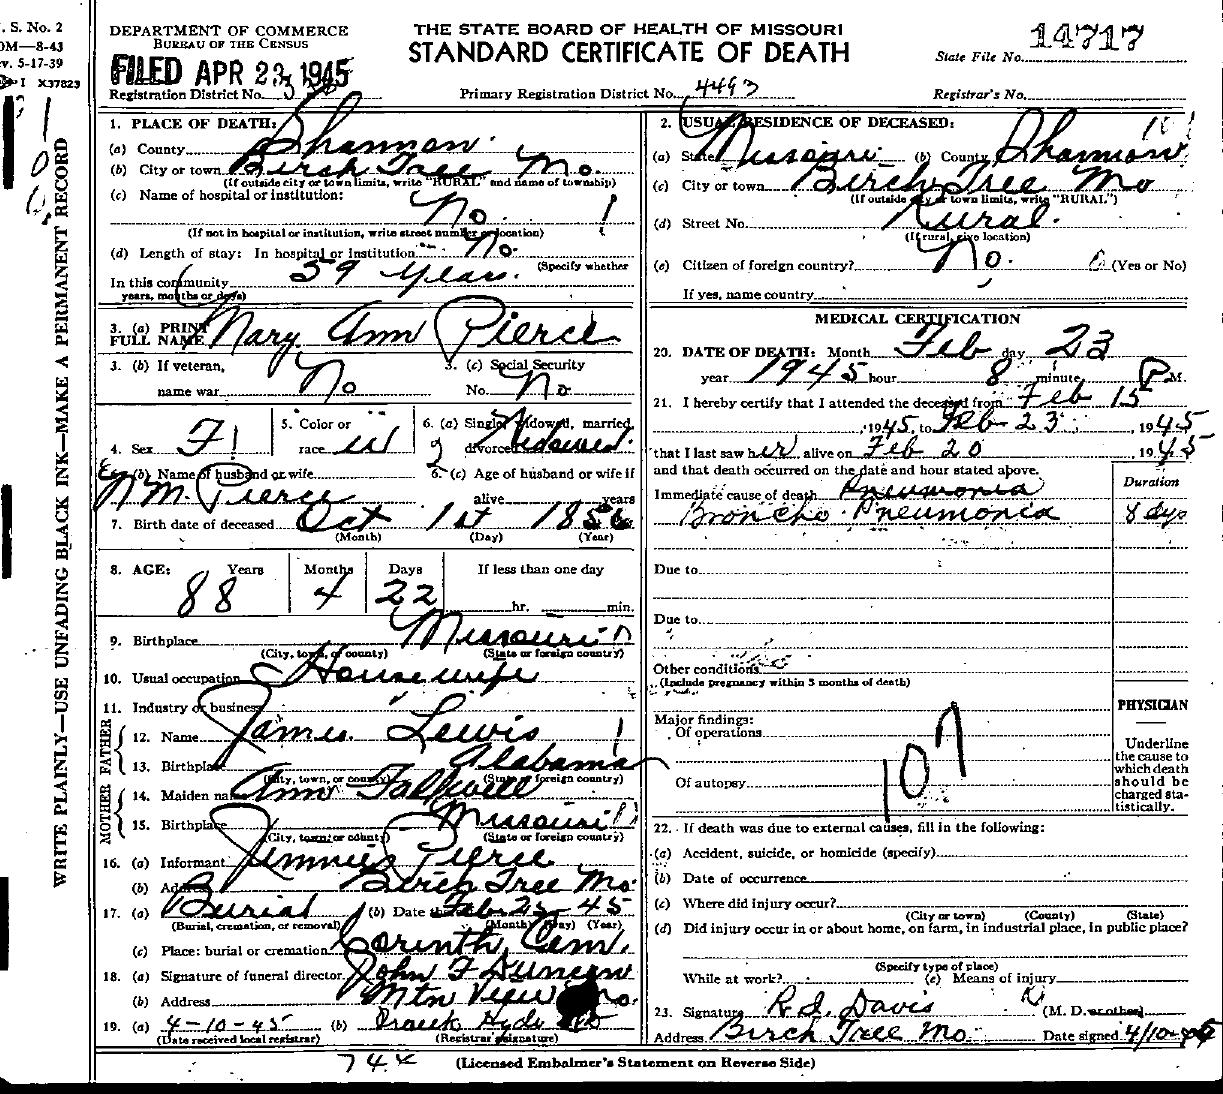 V. S. No. 2
OM—8-43
v. 5-17-39
I X37823
WRITE PLAINLY—USE UNFADING BLACK INK—MAKE A PERMANENT RECORD
DEPARTMENT OF COMMERCE
BUREAU OF THE CENSUS
FILED APR 23 1945
Registration District No.
THE STATE BOARD OF HEALTH OF MISSOURI
STANDARD CERTIFICATE OF DEATH
Primary Registration District No. 4493
State File No. 14717
Registrar's No.
1. PLACE OF DEATH:
(a) County Shannon
(b) City or town Birch Tree Mo.
(If outside city or town limits, write "RURAL" and name of township)
(c) Name of hospital or institution:
No.
(If not in hospital or institution, write street number or location)
(d) Length of stay: In hospital or Institution No.
(Specify whether
In this community 59 Years.
years, months or days)
3. (a) PRINT
FULL NAME Mary Ann Pierce
3. (b) If veteran,
name war No
3. (c) Social Security
No. No
4. Sex F
5. Color or
race W
6. (a) Single, widowed, married,
divorced Widowed.
6. (b) Name of husband or wife
N M. Pierce
6. (c) Age of husband or wife if
alive years
7. Birth date of deceased Oct 1st 1856
(Month) (Day) (Year)
8. AGE: Years Months Days If less than one day
88 4 22 hr. min.
9. Birthplace Missouri
(City, town, or county) (State or foreign country)
10. Usual occupation Housewife
11. Industry or business
FATHER
12. Name James Lewis
13. Birthplace Alabama
(City, town, or county) (State or foreign country)
MOTHER
14. Maiden name Ann
15. Birthplace Missouri
(City, town, or county) (State or foreign country)
16. (a) Informant Jimmie Pierce
(b) Address Birch Tree Mo.
17. (a) Burial (b) Date thereof Feb 25-45
(Burial, cremation, or removal) (Month) (Day) (Year)
(c) Place: burial or cremation Corinth Cem.
18. (a) Signature of funeral director John F Duncan
(b) Address Mtn View Mo.
19. (a) 4-10-45 (b) Hyde
(Date received local registrar) (Registrar's signature)
2. USUAL RESIDENCE OF DECEASED:
(a) State Missouri (b) County Shannon
(c) City or town Birch Tree Mo
(If outside city or town limits, write "RURAL")
(d) Street No. Rural.
(If rural, give location)
(e) Citizen of foreign country? No. (Yes or No)
If yes, name country
MEDICAL CERTIFICATION
20. DATE OF DEATH: Month Feb day 23
year 1945 hour 8 minute P. M.
21. I hereby certify that I attended the deceased from Feb 15
, 1945, to Feb 23, 1945
that I last saw her alive on Feb 20 1945
and that death occurred on the date and hour stated above.
Duration
Immediate cause of death Pneumonia
Broncho-Pneumonia 8 dys
Due to
Due to
Other conditions
(Include pregnancy within 3 months of death)
PHYSICIAN
Underline
the cause to
which death
should be
charged sta-
tistically.
Major findings:
Of operations
Of autopsy
107
22. If death was due to external causes, fill in the following:
(a) Accident, suicide, or homicide (specify)
(b) Date of occurrence
(c) Where did injury occur?
(City or town) (County) (State)
(d) Did injury occur in or about home, on farm, in industrial place, in public place?
(Specify type of place)
While at work? (e) Means of injury
23. Signature R. I. Davis (M. D. or other)
Address Birch Tree Mo. Date signed 4/10-45
744
(Licensed Embalmer's Statement on Reverse Side)